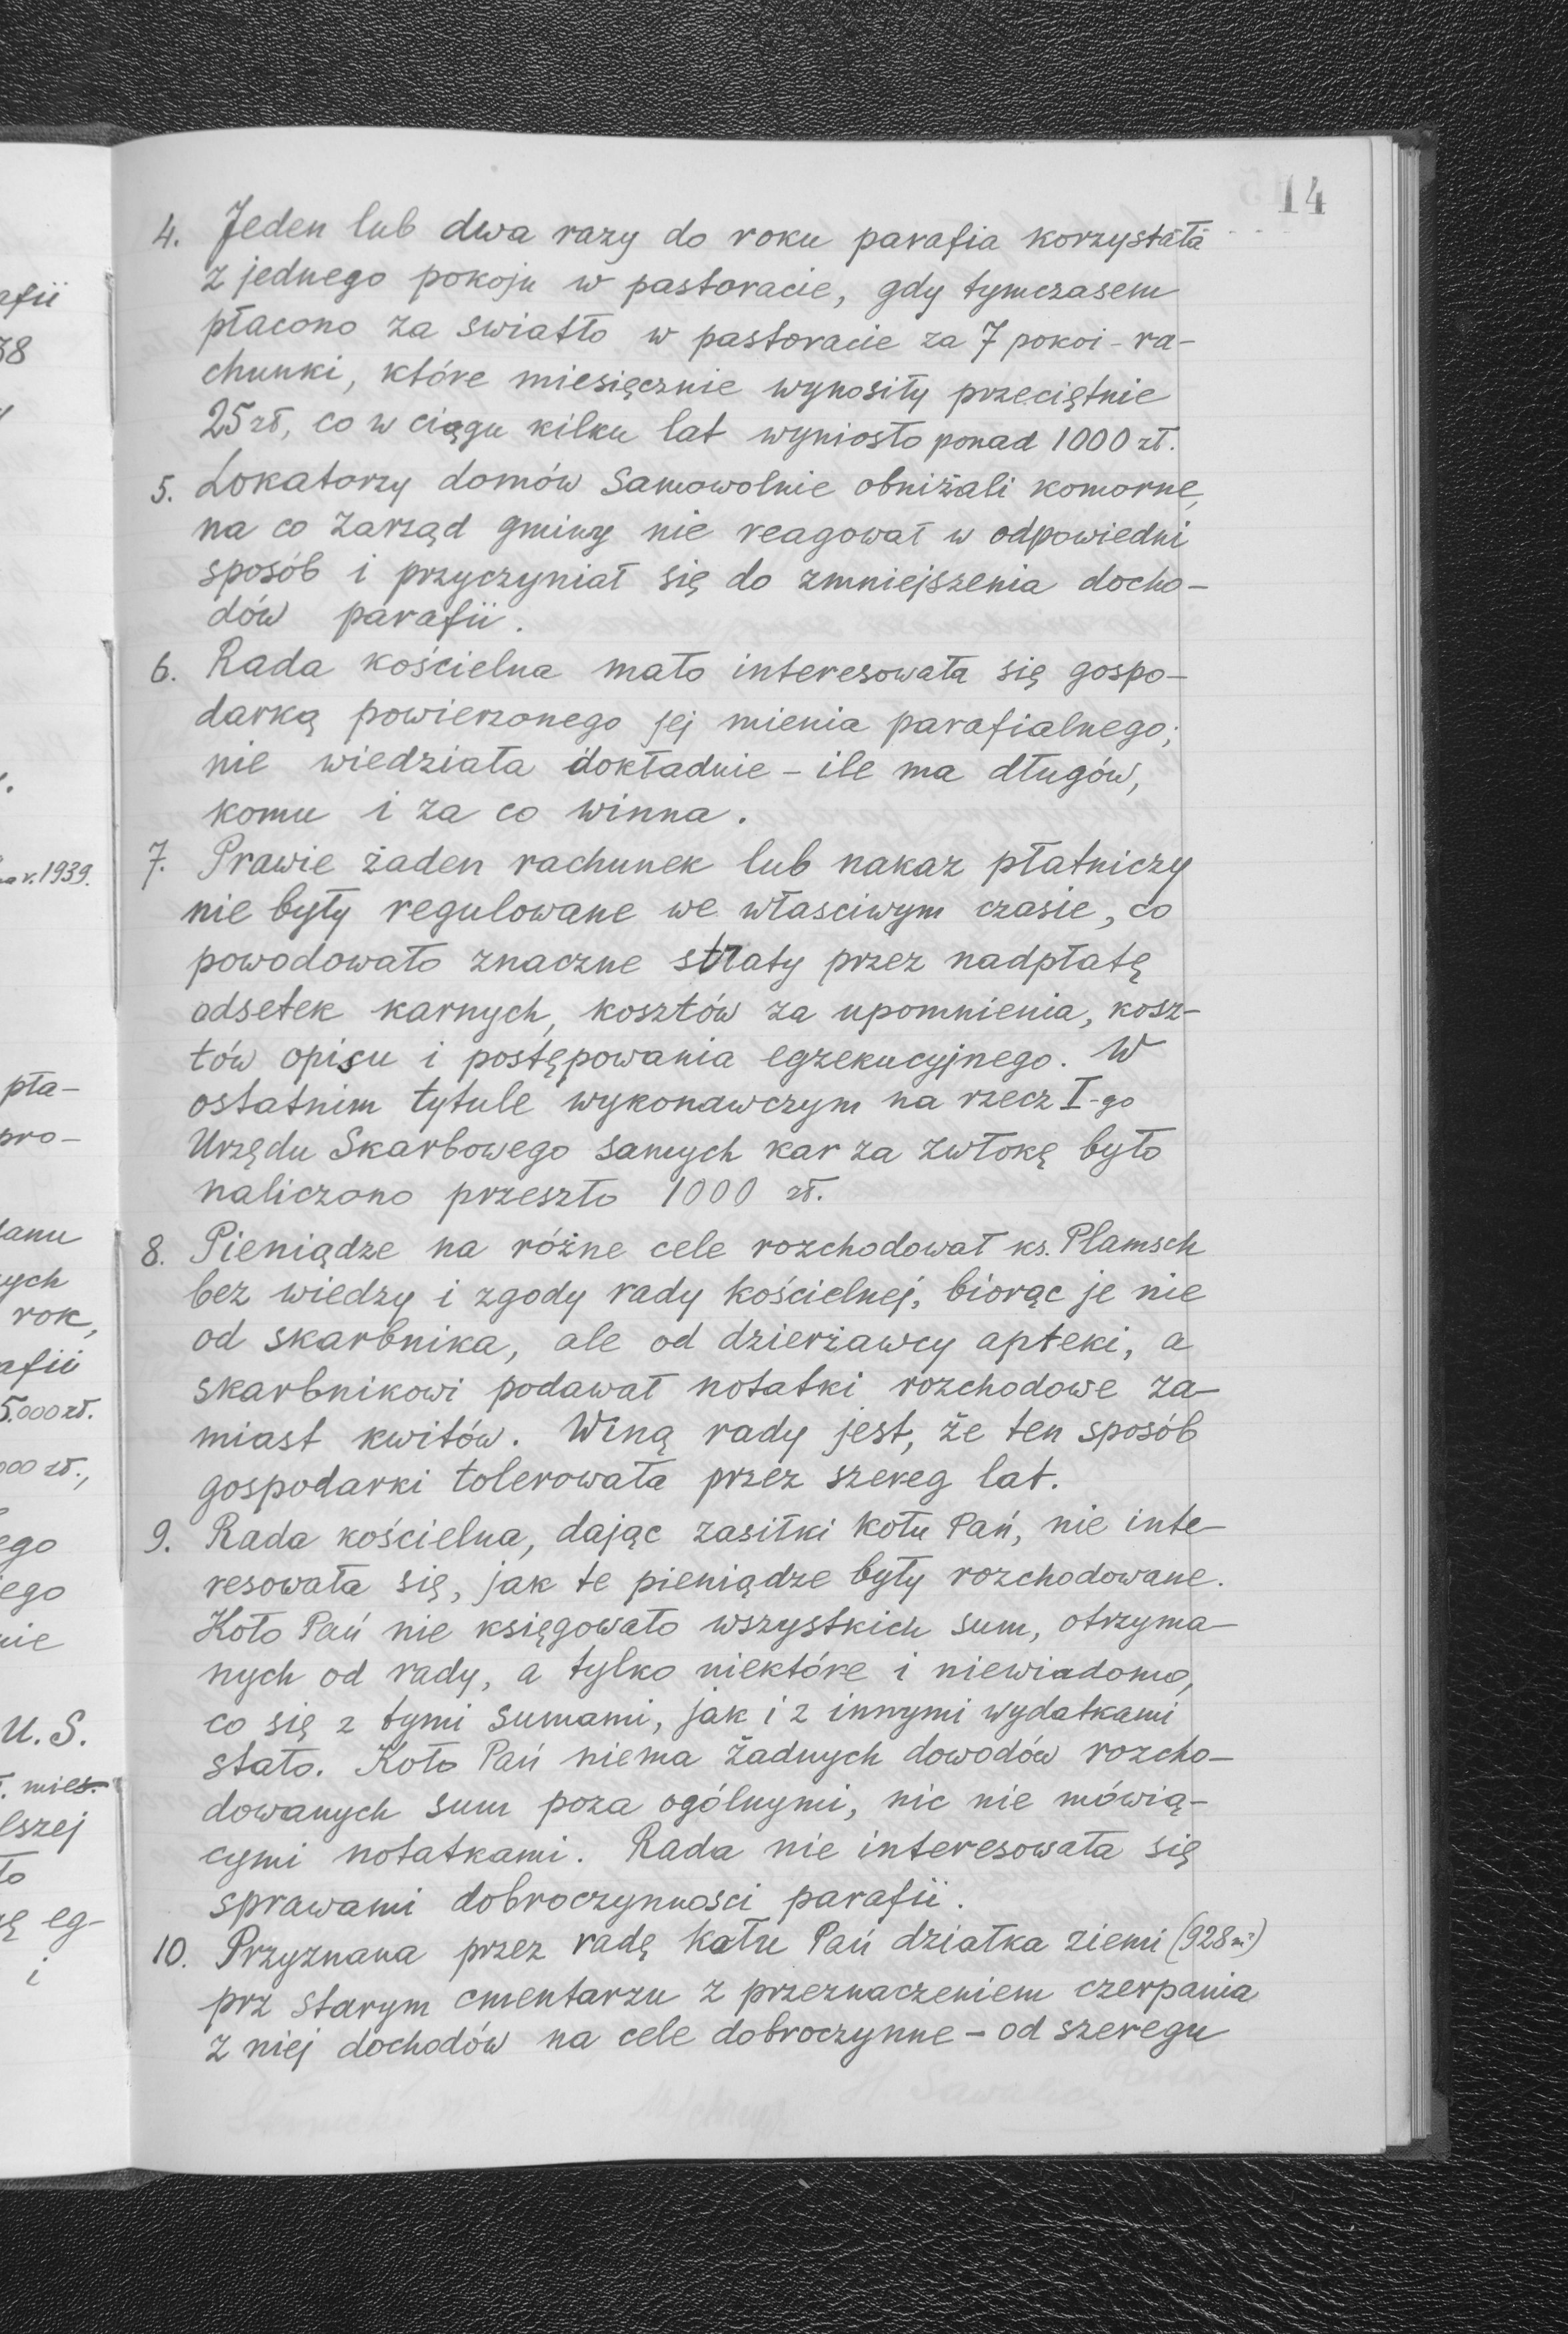 14
4. Jeden lub dwa razy do roku parafia korzystała
z jednego pokoju w pastoracie, gdy tymczasem
płacono za swiatło w pastoracie za 7 pokoi - ra-
chunki, które miesięcznie wynosiły przeciętnie
25 zł, co w ciągu kilku lat wyniosło ponad 1000 zł.
5. Lokatorzy domów samowolnie obniżali komorne,
na co zarząd gminy nie reagował w odpowiedni
sposób i przyczyniał się do zmniejszenia docho-
dów parafii.
6. Rada kościelna mało interesowała się gospo-
darką powierzonego jej mienia parafialnego;
nie wiedziała dokładnie - ile ma długów,
komu i za co winna.
7. Prawie żaden rachunek lub nakaz płatniczy
nie były regulowane we własciwym czasie, co
powodowało znaczne straty przez nadpłatę
odsetek karnych, kosztów za upomnienia, kosz-
tów opisu i postępowania egzekucyjnego. W
ostatnim tytule wykonawczym na rzecz I-go
Urzędu Skarbowego samych kar za zwłokę było
naliczono przeszło 1000 zł.
8. Pieniądze na różne cele rozchodował ks. Plamsch
bez wiedzy i zgody rady kościelnej, biorąc je nie
od skarbnika, ale od dzierżawcy apteki, a
skarbnikowi podawał notatki rozchodowe za-
miast kwitów. Winą rady jest, że ten sposób
gospodarki tolerowała przez szereg lat.
9. Rada kościelna, dając zasiłki Kołu Pań, nie inte-
resowała się, jak te pieniądze były rozchodowane.
Koło Pań nie księgowało wszystkich sum, otrzyma-
nych od rady, a tylko niektóre i niewiadomo,
co się z tymi sumami, jak i z innymi wydatkami
stało. Koło Pań niema żadnych dowodów rozcho-
dowanych sum poza ogólnymi, nic nie mówią-
cymi notatkami. Rada nie interesowała się
sprawami dobroczynnosci parafii.
10. Przyznana przez radę Kołu Pań działka ziemi (928 m²)
prz starym cmentarzu z przeznaczeniem czerpania
z niej dochodów na cele dobroczynne - od szeregu